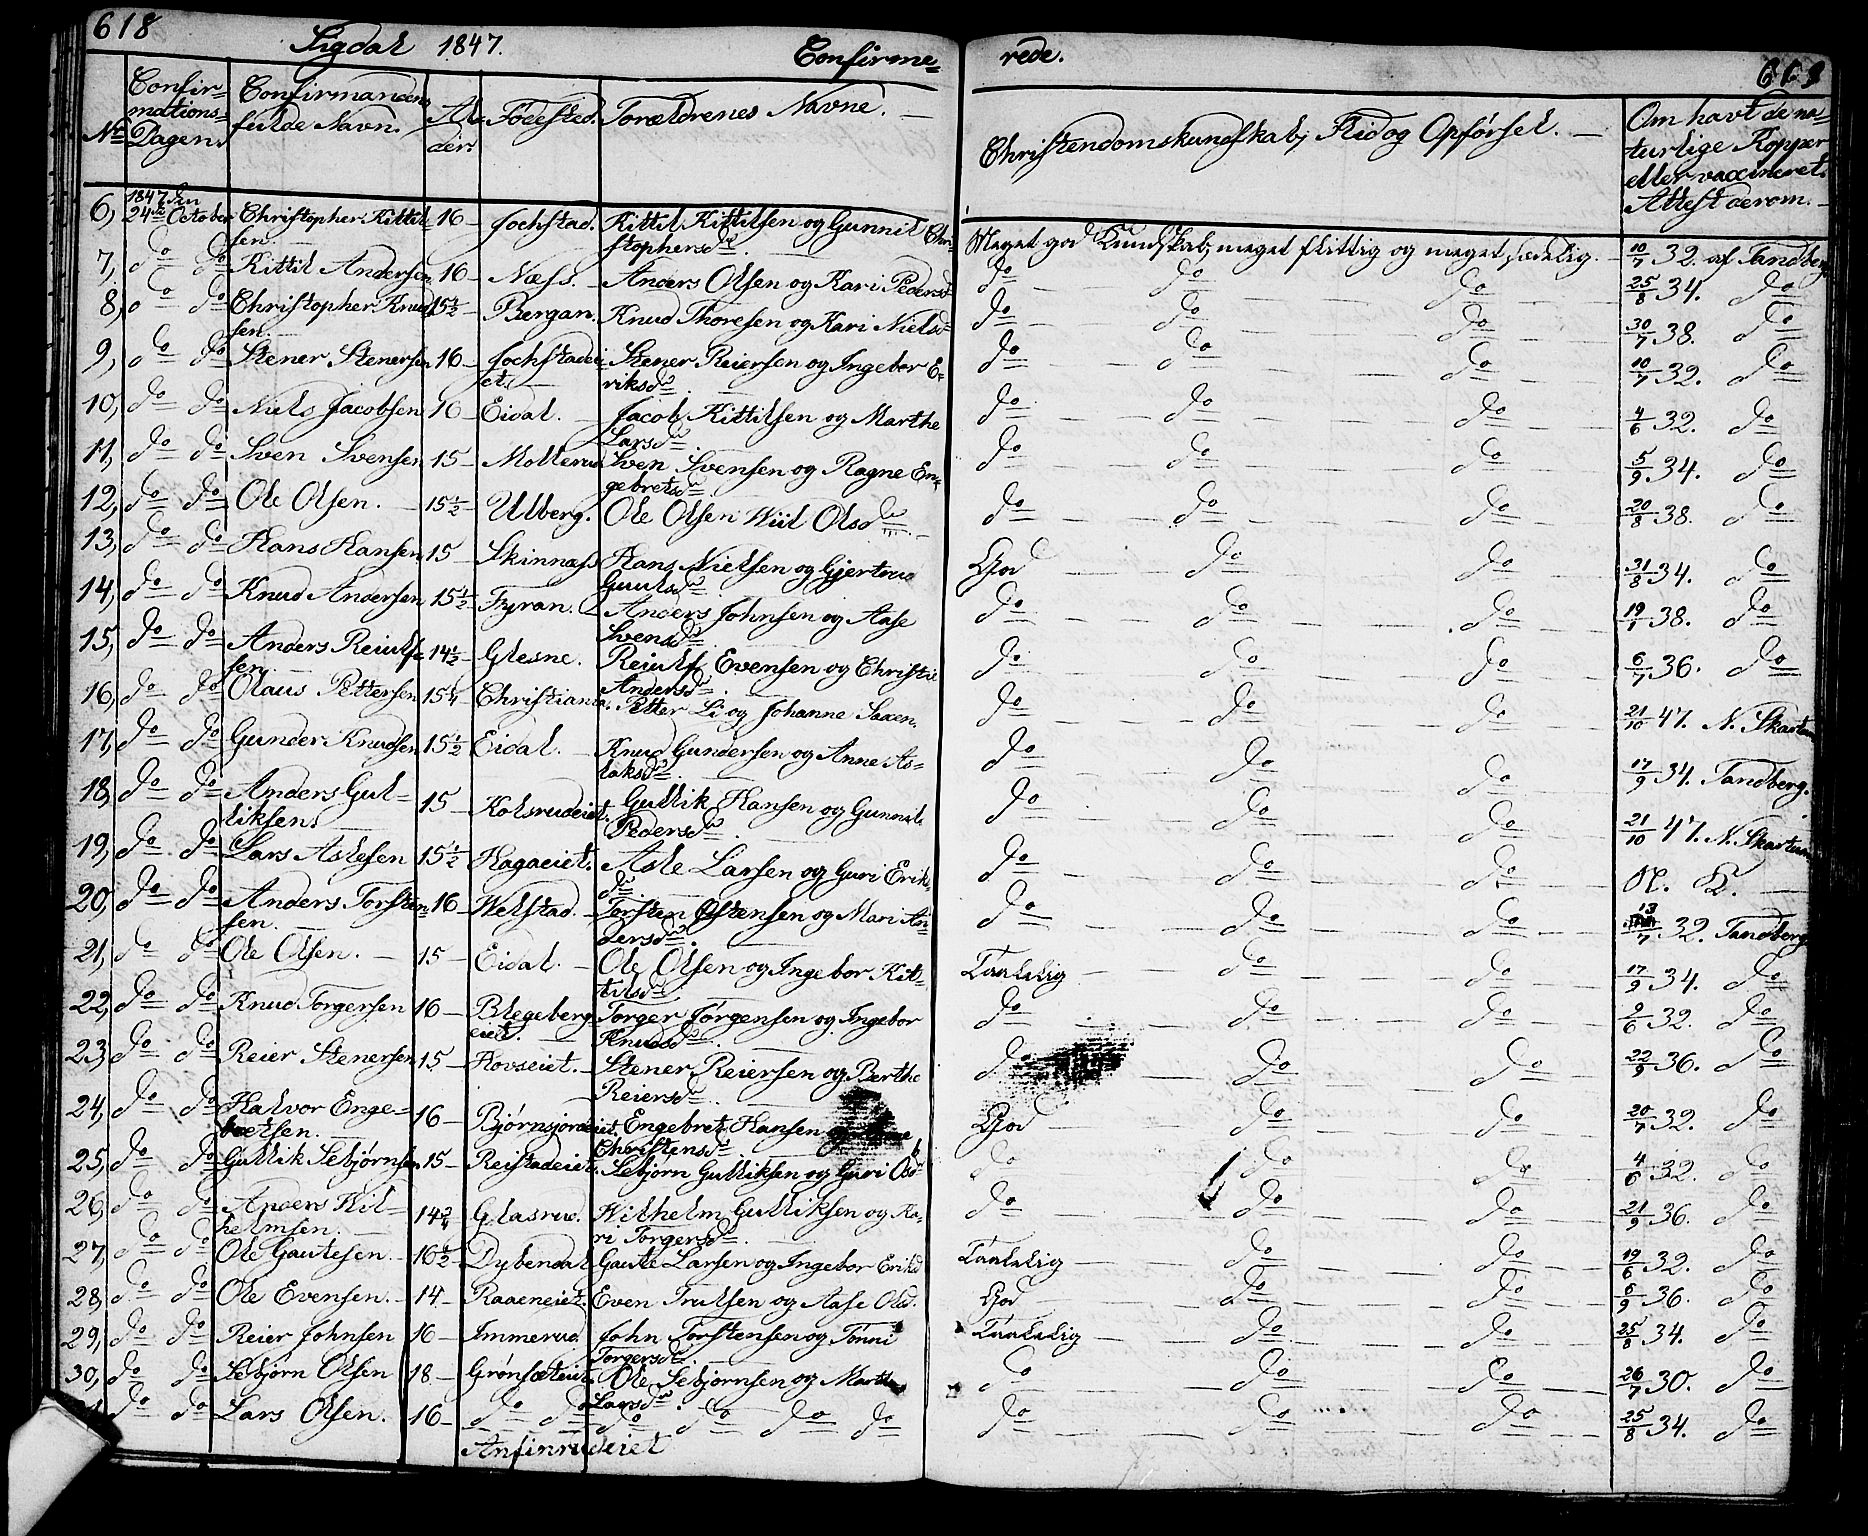 618
Sigdal 1847. Confirme=
rede.
619
Nr
Confir=
mations=
Dagen.
Confirmandens
fulde Navn.
Al=
der.
Födested.
Forældrenes Navne.
Christendomskundskab, Flid og Opførsel.
Om havt de na=
turlige Kopper
eller vaccineret.
Attest derom.
6, 1847 den 24de October Christopher Kittil= 16 Fochstad. Kittil Kittilsen og Gunnil Chri= Meget god Kundskab, meget flittig og meget sædelig. 10/7 32. af Tandberg
sen. stophersdr.
7, do do Kittil Andersen 16 Næss. Anders Olsen og Kari Pedersd do do do 25/8 34. do
8, do do Christopher Knud= 15½ Bergan. Knud Thoresen og Kari Nielsd do do do 30/7 38. do
sen.
9, do do Stener Stenersen 16 Fochstadei= Stener Reiersen og Ingebor E= do do do 10/7 32. do
et. riksdr.
10, do do Niels Jacobsen 16 Eidal. Jacob Kittilsen og Marthe do do do 4/6 32. do
Larsdr.
11, do do Sven Svensen 15 Molterud Sven Svensen og Ragne En= do do do 5/9 34. do
gebretsdr.
12, do do Ole Olsen. 15½ Ulberg. Ole Olsen Wiil Olsdr do do do 20/8 38. do
13, do do Hans Hansen 15 Skinnæss Hans Nielsen og Gjertrud God do do 31/8 34. do
Guulsdr.
14, do do Knud Andersen 15½ Fyran. Anders Johnsen og Aase do do do 19/1 38. do
Svensdr.
15, do do Anders Reiulf= 14½ Glesne. Reiulf Evensen og Christie do do do 6/7 36. do
sen. Andersdr.
16, do do Olaus Pettersen 15¼ Christiania. Petter Li og Johanne Saxen. do do do 21/10 47. N. Skartum
17, do do Gunder Knudsen 15½ Eidal. Knud Gundersen og Anne As= do do do 17/9 34. Tandberg.
laksdr.
18, do do Anders Gul= 15 Kolsrudeiet. Gullik Hansen og Gunnil do do do 21/10 47. N. Skartum
liksen. Pedersdr.
19, do do Lars Aslesen 15½ Hagaeiet. Asle Larsen og Guri Erik= do do do N. K.
dr
20, do do Anders Torsten= 16 Welstad. Torsten Østensen og Mari An= do do do 13/7 32. Tandberg
sen. dersdr.
21, do do Ole Olsen. 15 Eidal. Ole Olsen og Ingebor Kit= Taalelig do do 17/9 34. do
tilsdr
22, do do Knud Torgersen 16 Blegeberg Torger Jørgensen og Ingebor do do do 2/6 32. do
eiet. Knudsdr.
23, do do Reier Stenersen 15 Hovseiet. Stener Reiersen og Berthe do do do 22/9 36. do
Reiersdr.
24, do do Halvor Enge= 16 Bjørnsjordeiet Engebret Hansen og God do do 20/7 32. do
bretsen. Christensdr
25, do do Gullik Sebjørnsen 15 Reistadeiet. Sebjørn Gulliksen og Guri Olsd do do do 4/6 32. do
26, do do Anders Wil= 14¾ Glasrud. Wilhelm Gulliksen og Ka= do do do 21/9 36. do
helmsen. ri Torgersdr.
27, do do Ole Gautesen 16½ Dybendal Gaute Larsen og Ingebor Eriksd Taalelig do do 19/6 32. do
28, do do Ole Evensen. 14 Raaeneiet. Even Trulsen og Aase Olsd. God do do 6/9 36. do
29, do do Reier Johnsen 16 Immerud. John Torstensen og Tonni Taalelig do do 25/8 34. do
Torgersdr.
30, do do Sebjørn Olsen 18 Grønsæteiet. Ole Sebjørnsen og Marthe do do do 26/7 30. do
Larsdr.
do do Lars Olsen. 16 do do do do do do do do do 25/8 34. do
Anfinrudeiet